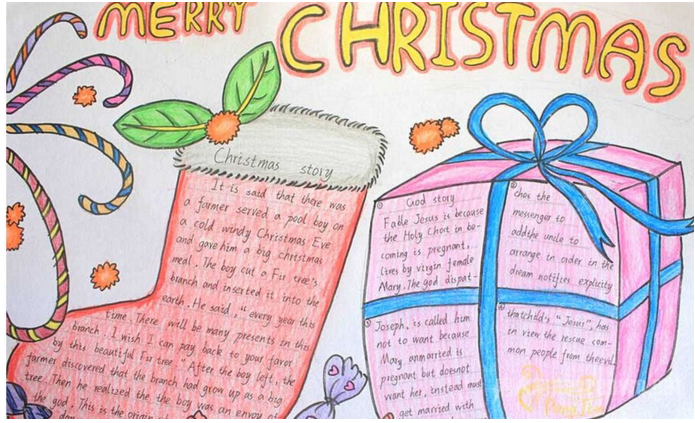 MERRY CHRISTMAS
Christmas story
It is said that there was
a farmer served a pool boy on
a cold windy Christmas Eve
and gave him a big christmas
meal. The boy cut a Fir tree's
branch and inserted it into the
earth. He said, "every year this
time. There will be many presents in this
branch I wish I can pay back to your favor
by this beautiful Fir tree" After the boy left, the
farmer discovered that the branch had grow up as a big
tree. Then he realized the the boy was an envoy of
the god. This is the origin
① God story
Fable Jesus is because
the Holy Choir in be-
coming is pregnant,
lives by virgin female
Mary. The god dispat-
② ches the
messenger to
addthe unile to
arrange in order in the
dream notifies explicity
③ Joseph, is called him
not to want because
Mary unmarried is
pregnant but doesnot
want her, instead must
get married with
④ thatchild's "Jesus", has
in view the rescue com-
mon people from theevil